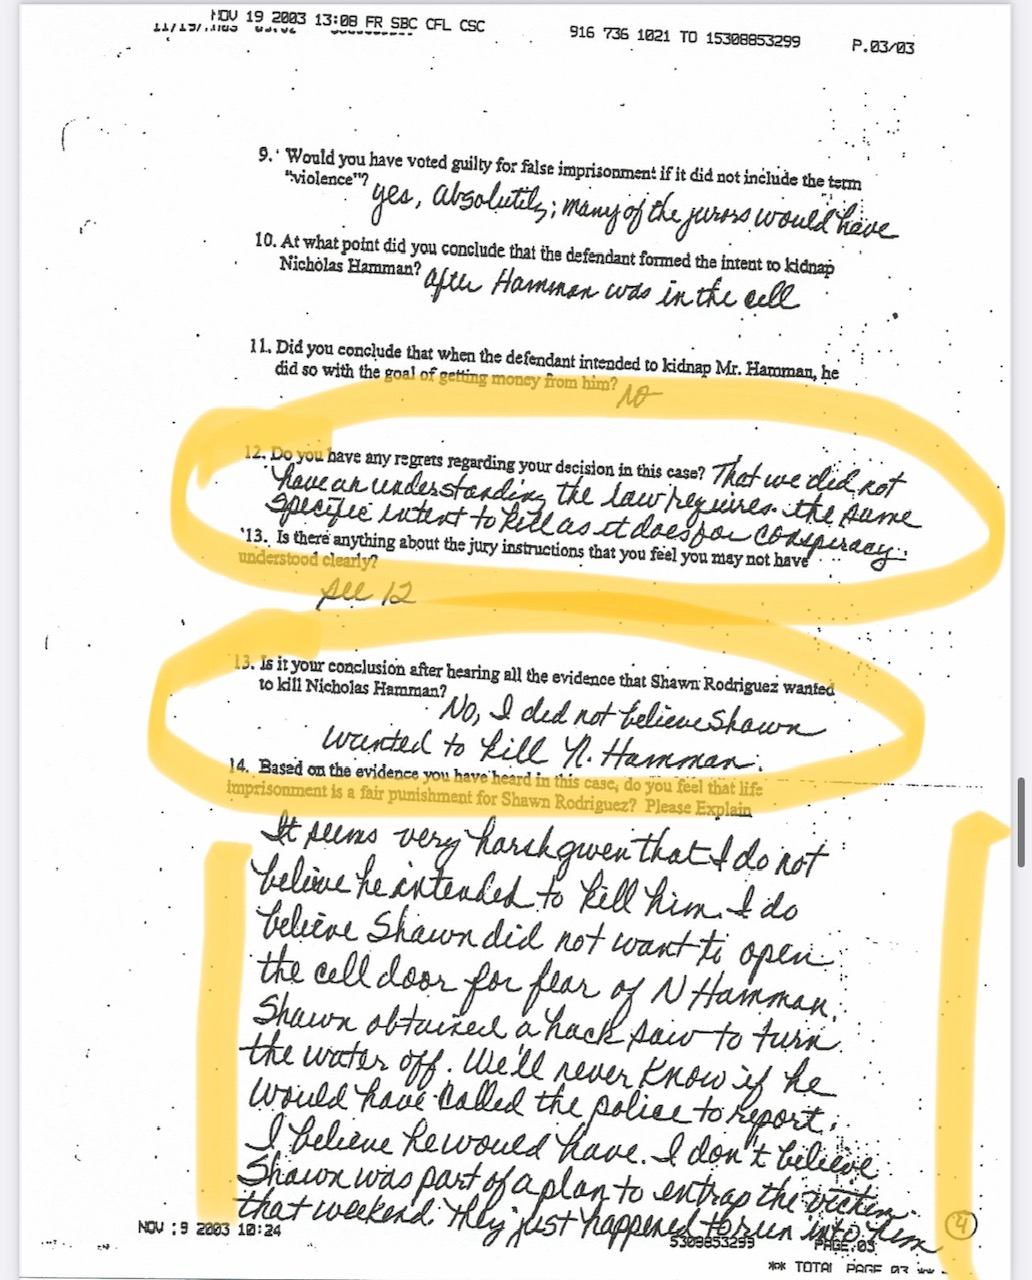 NOV 19 2003 13:08 FR SBC CFL CSC
916 736 1021 TO 15308853299
P.03/03
9. Would you have voted guilty for false imprisonment if it did not include the term
"violence"? yes, absolutely; many of the jurors would have
10. At what point did you conclude that the defendant formed the intent to kidnap
Nicholas Hamman? after Hamman was in the cell
11. Did you conclude that when the defendant intended to kidnap Mr. Hamman, he
did so with the goal of getting money from him? NO
12. Do you have any regrets regarding your decision in this case? That we did not
have an understanding the law requires the same
specific intent to kill as it does for conspiracy.
13. Is there anything about the jury instructions that you feel you may not have
understood clearly?
see 12
13. Is it your conclusion after hearing all the evidence that Shawn Rodriguez wanted
to kill Nicholas Hamman?
No, I did not believe Shawn
wanted to kill N. Hamman.
14. Based on the evidence you have heard in this case, do you feel that life
imprisonment is a fair punishment for Shawn Rodriguez? Please Explain
It seems very harsh given that I do not
believe he intended to kill him. I do
believe Shawn did not want to open
the cell door for fear of N Hamman.
Shawn obtained a hack saw to turn
the water off. We'll never know if he
would have called the police to report.
I believe he would have. I don't believe
Shawn was part of a plan to entrap the victim
that weekend. They just happened to run into him
4
NOV 19 2003 10:24
5308853299
PAGE.03
** TOTAL PAGE 03 **